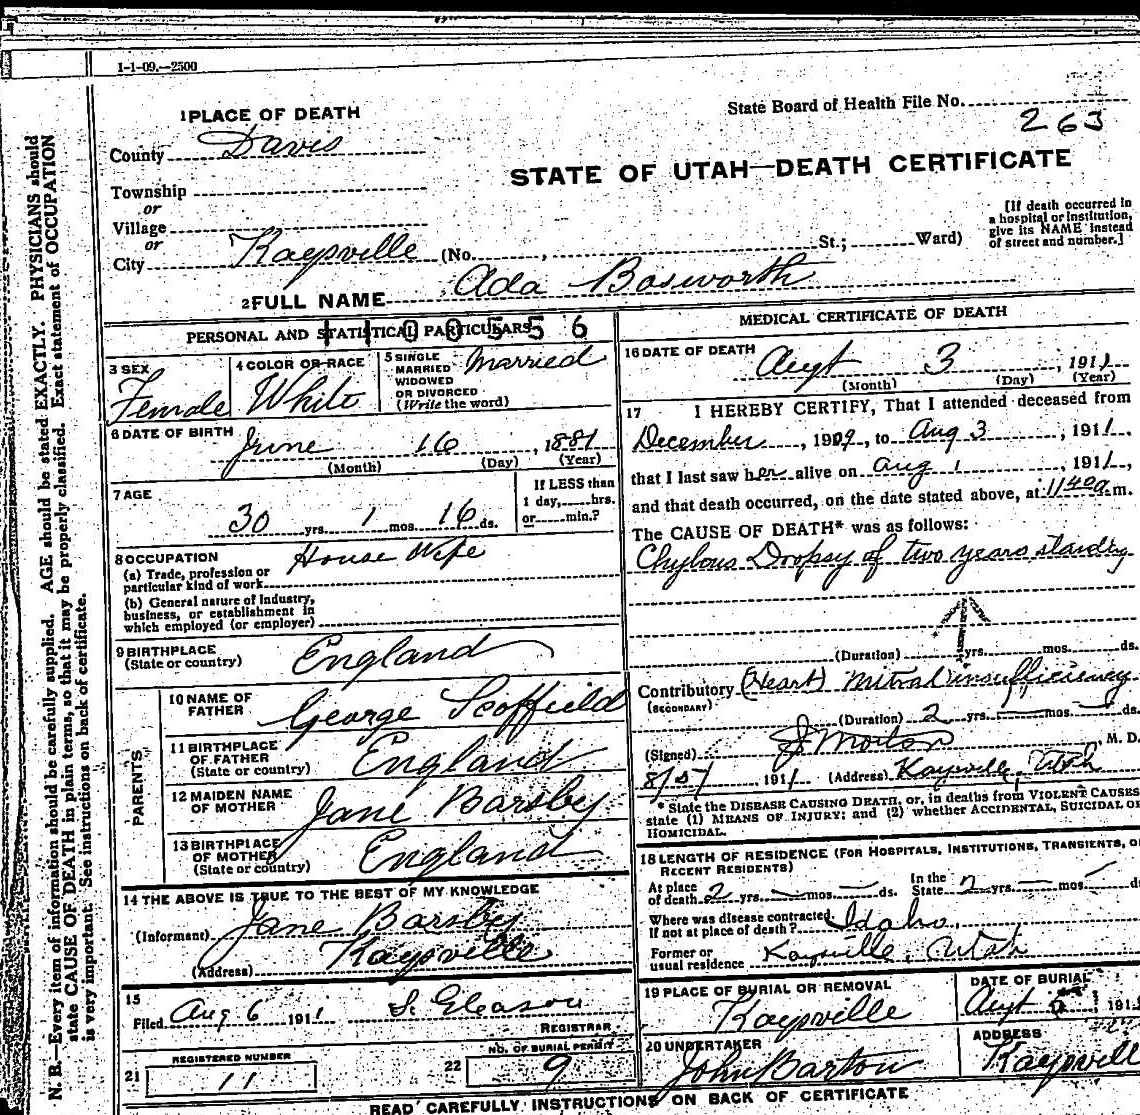 1-1-09.—2500
State Board of Health File No.
263
1 PLACE OF DEATH
County Davis
STATE OF UTAH—DEATH CERTIFICATE
Township
or
Village
or
City Kaysville (No. , St.; Ward)
[If death occurred in a hospital or institution, give its NAME instead of street and number.]
2 FULL NAME Ada Bosworth
PERSONAL AND STATISTICAL PARTICULARS
1100556
3 SEX
Female
4 COLOR OR RACE
White
5 SINGLE
MARRIED
WIDOWED
OR DIVORCED
(Write the word)
Married
6 DATE OF BIRTH
June 16, 1881
(Month) (Day) (Year)
7 AGE
30 yrs. 1 mos. 16 ds.
If LESS than
1 day, hrs.
or min.?
8 OCCUPATION
House Wife
(a) Trade, profession or
particular kind of work
(b) General nature of industry,
business, or establishment in
which employed (or employer)
9 BIRTHPLACE
(State or country)
England
PARENTS
10 NAME OF
FATHER
George Scoffield
11 BIRTHPLACE
OF FATHER
(State or country)
England
12 MAIDEN NAME
OF MOTHER
Jane Barsby
13 BIRTHPLACE
OF MOTHER
(State or country)
England
14 THE ABOVE IS TRUE TO THE BEST OF MY KNOWLEDGE
(Informant) Jane Barsby
(Address) Kaysville
15
Filed Aug 6 1911 S. Gleason
REGISTRAR
21 REGISTERED NUMBER
11
22 NO. OF BURIAL PERMIT
9
MEDICAL CERTIFICATE OF DEATH
16 DATE OF DEATH
Augt 3, 1911
(Month) (Day) (Year)
17 I HEREBY CERTIFY, That I attended deceased from
December, 1909, to Aug 3, 1911,
that I last saw her alive on Aug 1, 1911,
and that death occurred, on the date stated above, at 11 40 a m.
The CAUSE OF DEATH* was as follows:
Chylous Dropsy of two years standing
(Duration) yrs. mos. ds.
Contributory (Heart) mitral insufficiency
(SECONDARY)
(Duration) 2 yrs. — mos. — ds.
(Signed) J. Morton, M. D.
8/5/ 1911 (Address) Kaysville, Utah
* State the DISEASE CAUSING DEATH, or, in deaths from VIOLENT CAUSES
state (1) MEANS OF INJURY; and (2) whether ACCIDENTAL, SUICIDAL OR
HOMICIDAL.
18 LENGTH OF RESIDENCE (FOR HOSPITALS, INSTITUTIONS, TRANSIENTS, OR
RECENT RESIDENTS)
At place
of death 2 yrs. — mos. — ds.
In the
State 2 yrs. — mos. — ds.
Where was disease contracted,
If not at place of death? Idaho.
Former or
usual residence Kaysville, Utah
19 PLACE OF BURIAL OR REMOVAL
Kaysville
DATE OF BURIAL
Augt 5 1911
20 UNDERTAKER
John Barton
ADDRESS
Kaysville
READ CAREFULLY INSTRUCTIONS ON BACK OF CERTIFICATE
N. B.—Every item of information should be carefully supplied. AGE should be stated EXACTLY. PHYSICIANS should
state CAUSE OF DEATH in plain terms, so that it may be properly classified. Exact statement of OCCUPATION
is very important. See instructions on back of certificate.